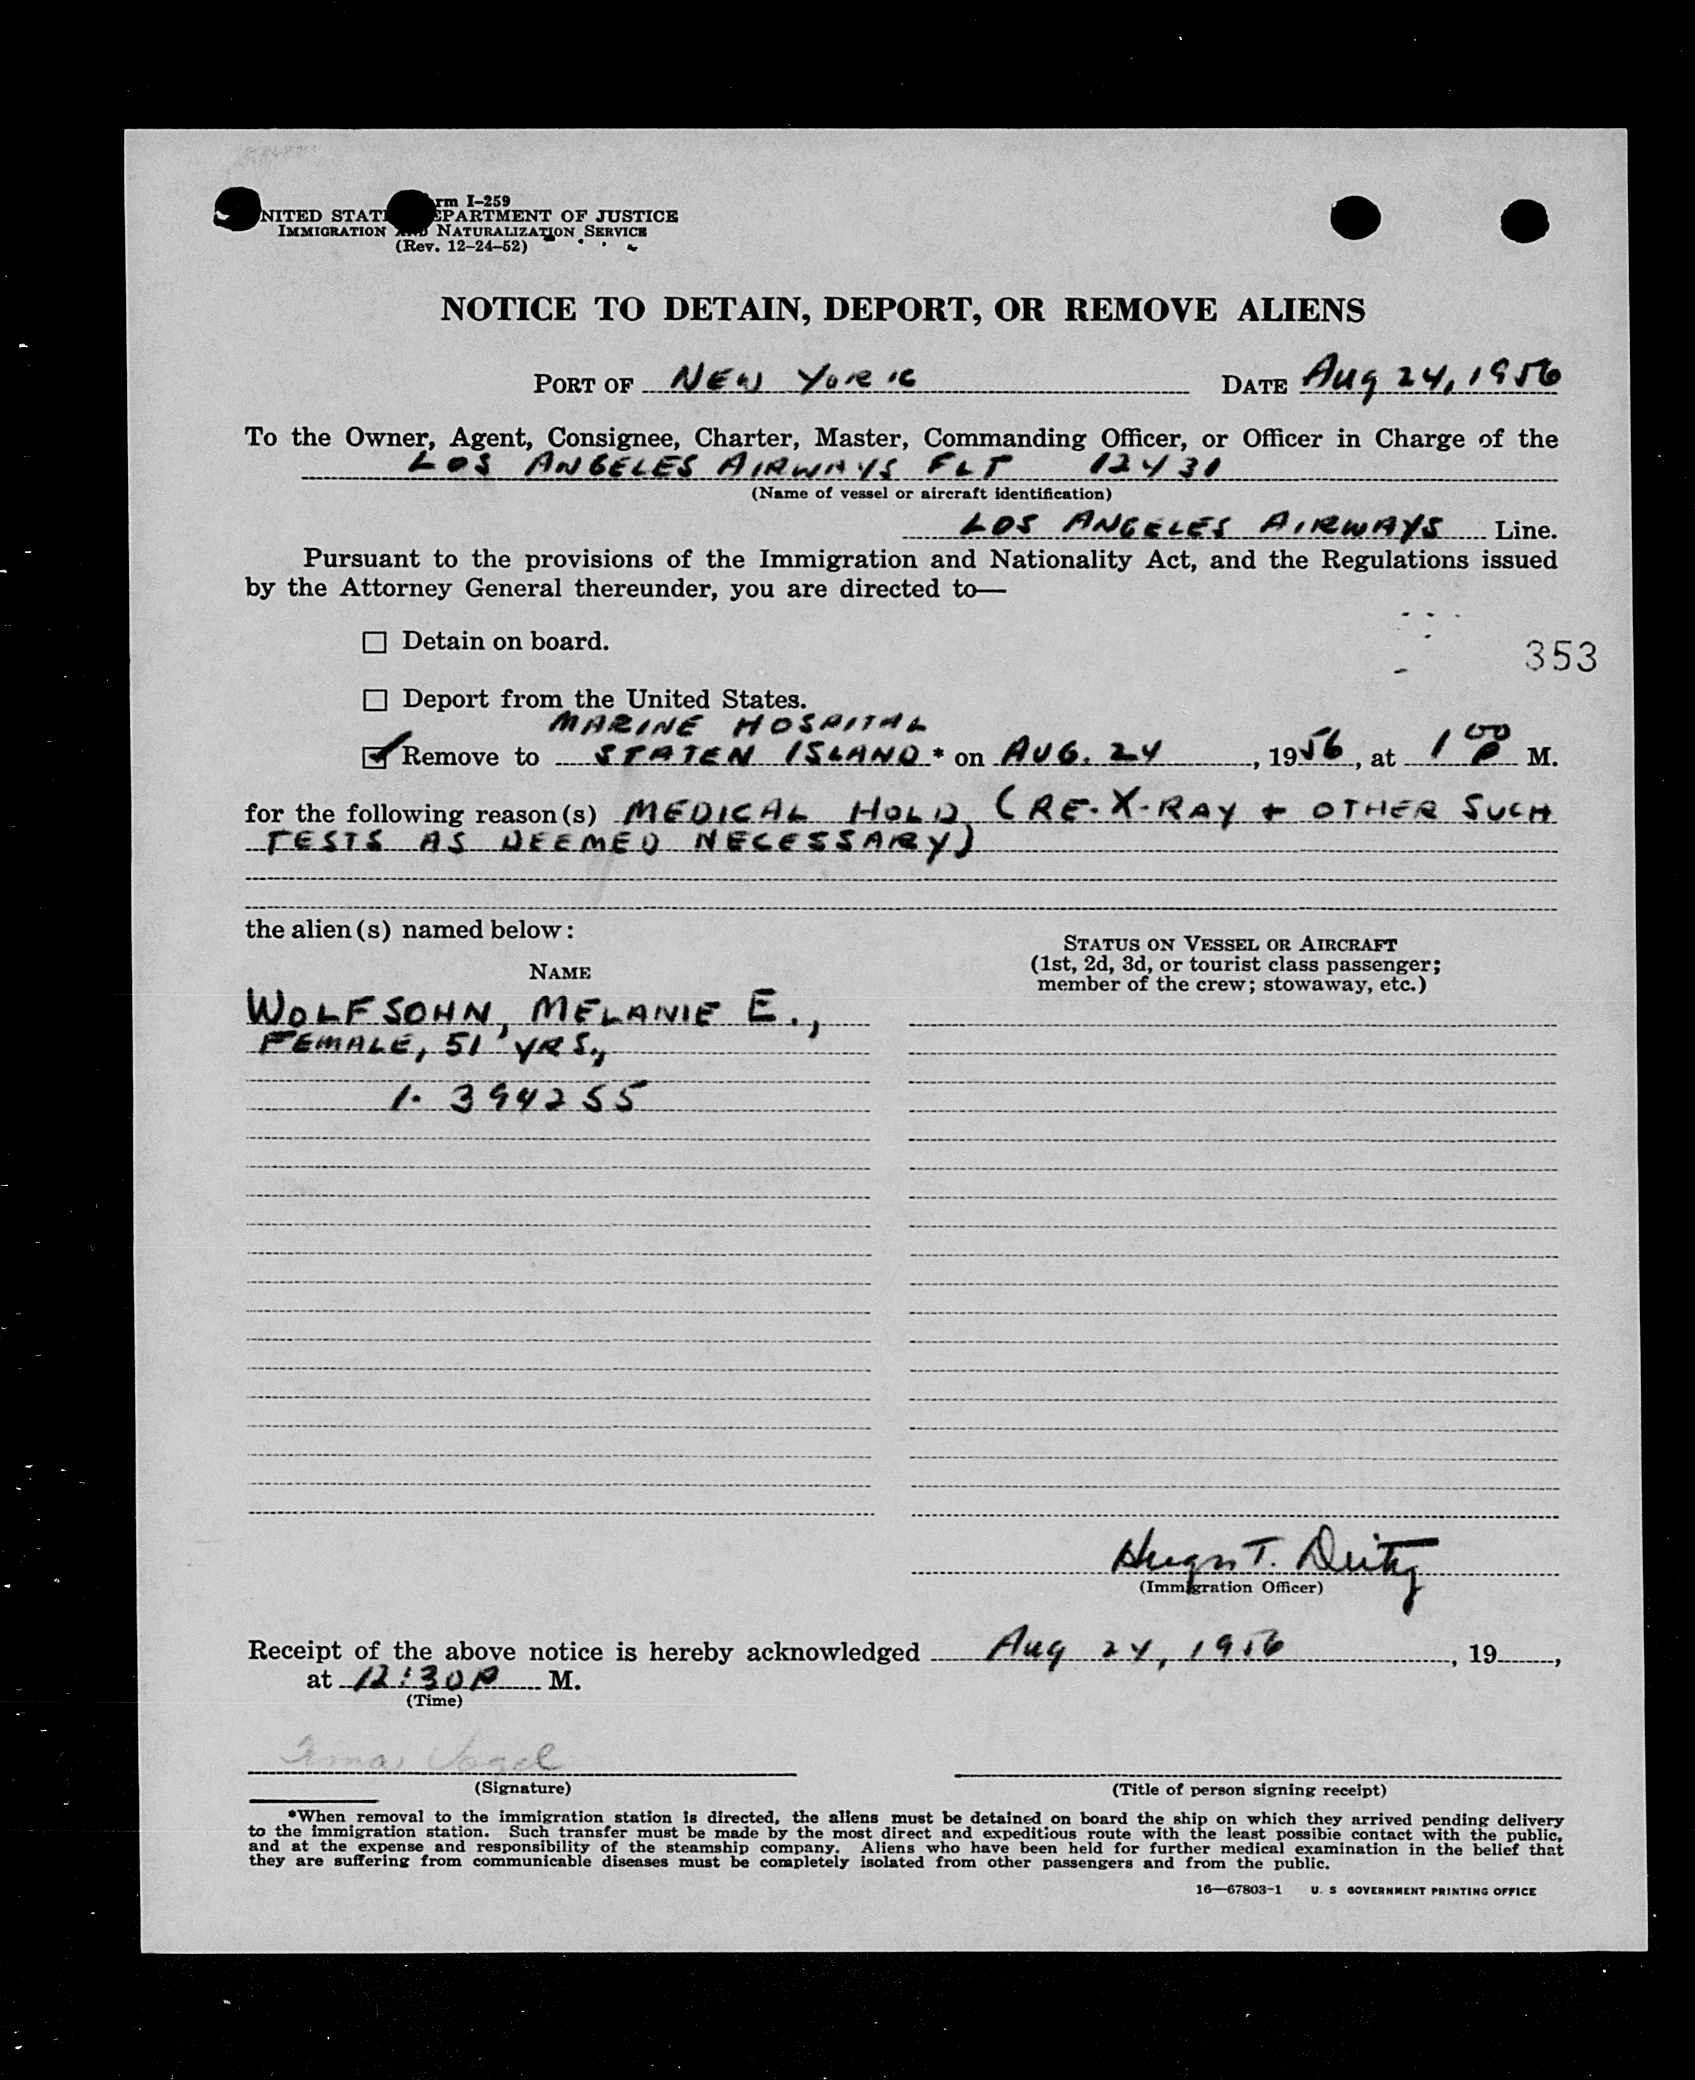 rm I-259
NITED STAT EPARTMENT OF JUSTICE
IMMIGRATION AND NATURALIZATION SERVICE
(Rev. 12-24-52)
NOTICE TO DETAIN, DEPORT, OR REMOVE ALIENS
PORT OF NEW YORK DATE Aug 24, 1956
To the Owner, Agent, Consignee, Charter, Master, Commanding Officer, or Officer in Charge of the
LOS ANGELES AIRWAYS FLT 12431
(Name of vessel or aircraft identification)
LOS ANGELES AIRWAYS Line.
Pursuant to the provisions of the Immigration and Nationality Act, and the Regulations issued
by the Attorney General thereunder, you are directed to—
☐ Detain on board.
353
☐ Deport from the United States.
MARINE HOSPITAL
☑ Remove to STATEN ISLAND * on AUG. 24, 1956, at 1 00 P M.
for the following reason(s) MEDICAL HOLD (RE-X-RAY + OTHER SUCH
TESTS AS DEEMED NECESSARY)
the alien(s) named below:
NAME
STATUS ON VESSEL OR AIRCRAFT
(1st, 2d, 3d, or tourist class passenger;
member of the crew; stowaway, etc.)
WOLFSOHN, MELANIE E.,
FEMALE, 51 YRS.,
1. 394255
(Immigration Officer)
Receipt of the above notice is hereby acknowledged Aug 24, 1956, 19 ,
at 12:30 P M.
(Time)
Vogel
(Signature)
(Title of person signing receipt)
*When removal to the immigration station is directed, the aliens must be detained on board the ship on which they arrived pending delivery
to the immigration station. Such transfer must be made by the most direct and expeditious route with the least possible contact with the public,
and at the expense and responsibility of the steamship company. Aliens who have been held for further medical examination in the belief that
they are suffering from communicable diseases must be completely isolated from other passengers and from the public.
16—67803-1 U. S GOVERNMENT PRINTING OFFICE